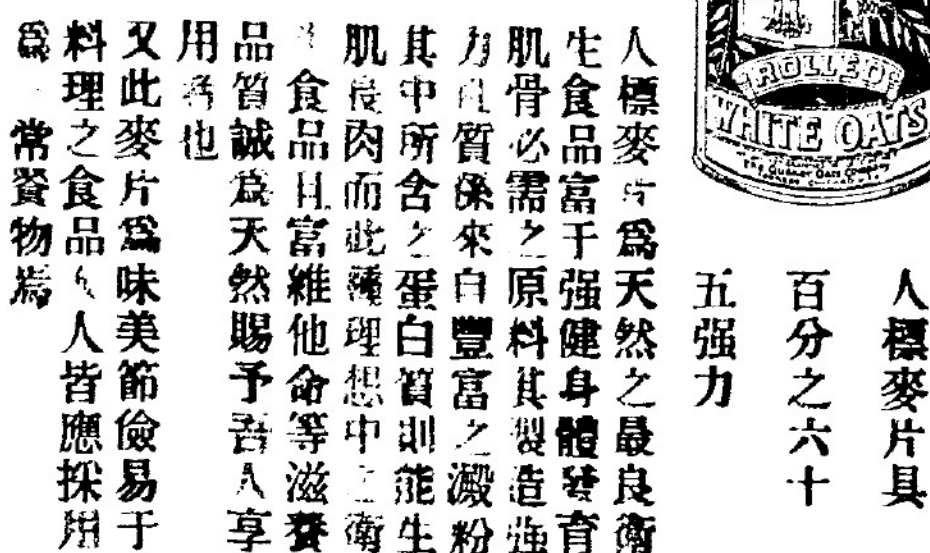 ROLLED
WHITE OATS
THE QUAKER OATS COMPANY
人標麥片具
百分之六十
五强力
人標麥片爲天然之最良衛
生食品富于强健身體發育
肌骨必需之原料其製造强
力性質係來自豐富之澱粉
其中所含之蛋白質則能生
肌長肉而此種理想中之衛
食品且富維他命等滋養
品質誠爲天然賜予吾人享
用者也
又此麥片爲味美節儉易于
料理之食品人人皆應採用
爲常餐物焉